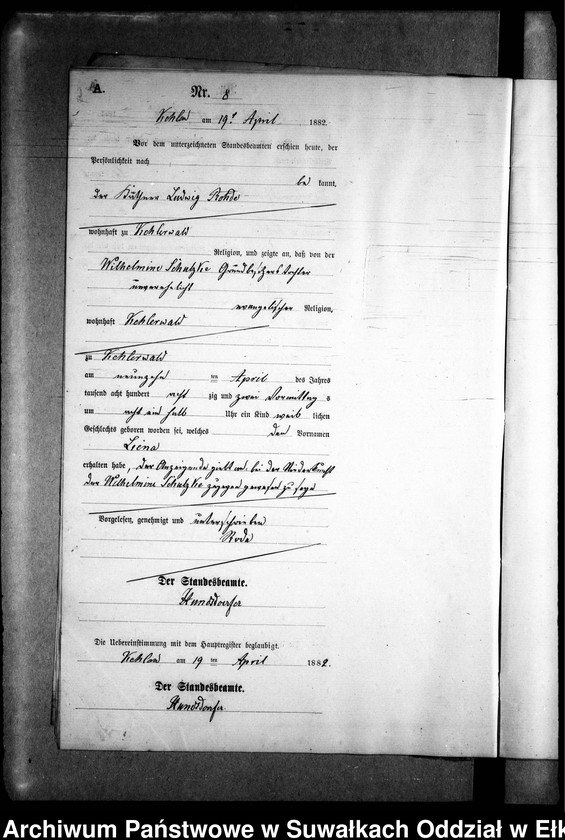 A.
Nr. 8
Kehlen am 19t April 1882.
Vor dem unterzeichneten Standesbeamten erschien heute, der
Persönlichkeit nach
be kannt,
der Käthner Ludwig Rohde
wohnhaft zu Kehlerwald
Religion, und zeigte an, daß von der
Wilhelmine Schulzke Grundbesitzers Tochter
unverehelicht
evangelischer Religion,
wohnhaft Kehlerwald
zu Kehlerwald
am neunzehn ten April des Jahres
tausend acht hundert acht zig und zwei Vormittag s
um acht ein halb Uhr ein Kind weib lichen
Geschlechts geboren worden sei, welches den Vornamen
Liena
erhalten habe, der Anzeigende giebt an bei der Niederkunft
der Wilhelmine Schulzke zugegen gewesen zu sein
Vorgelesen, genehmigt und unterschrieben
Rode
Der Standesbeamte.
Hundsdorfer
Die Uebereinstimmung mit dem Hauptregister beglaubigt.
Kehlen am 19 ten April 1882.
Der Standesbeamte.
Hundsdorfer
Archiwum Państwowe w Suwałkach Oddział w Ełk